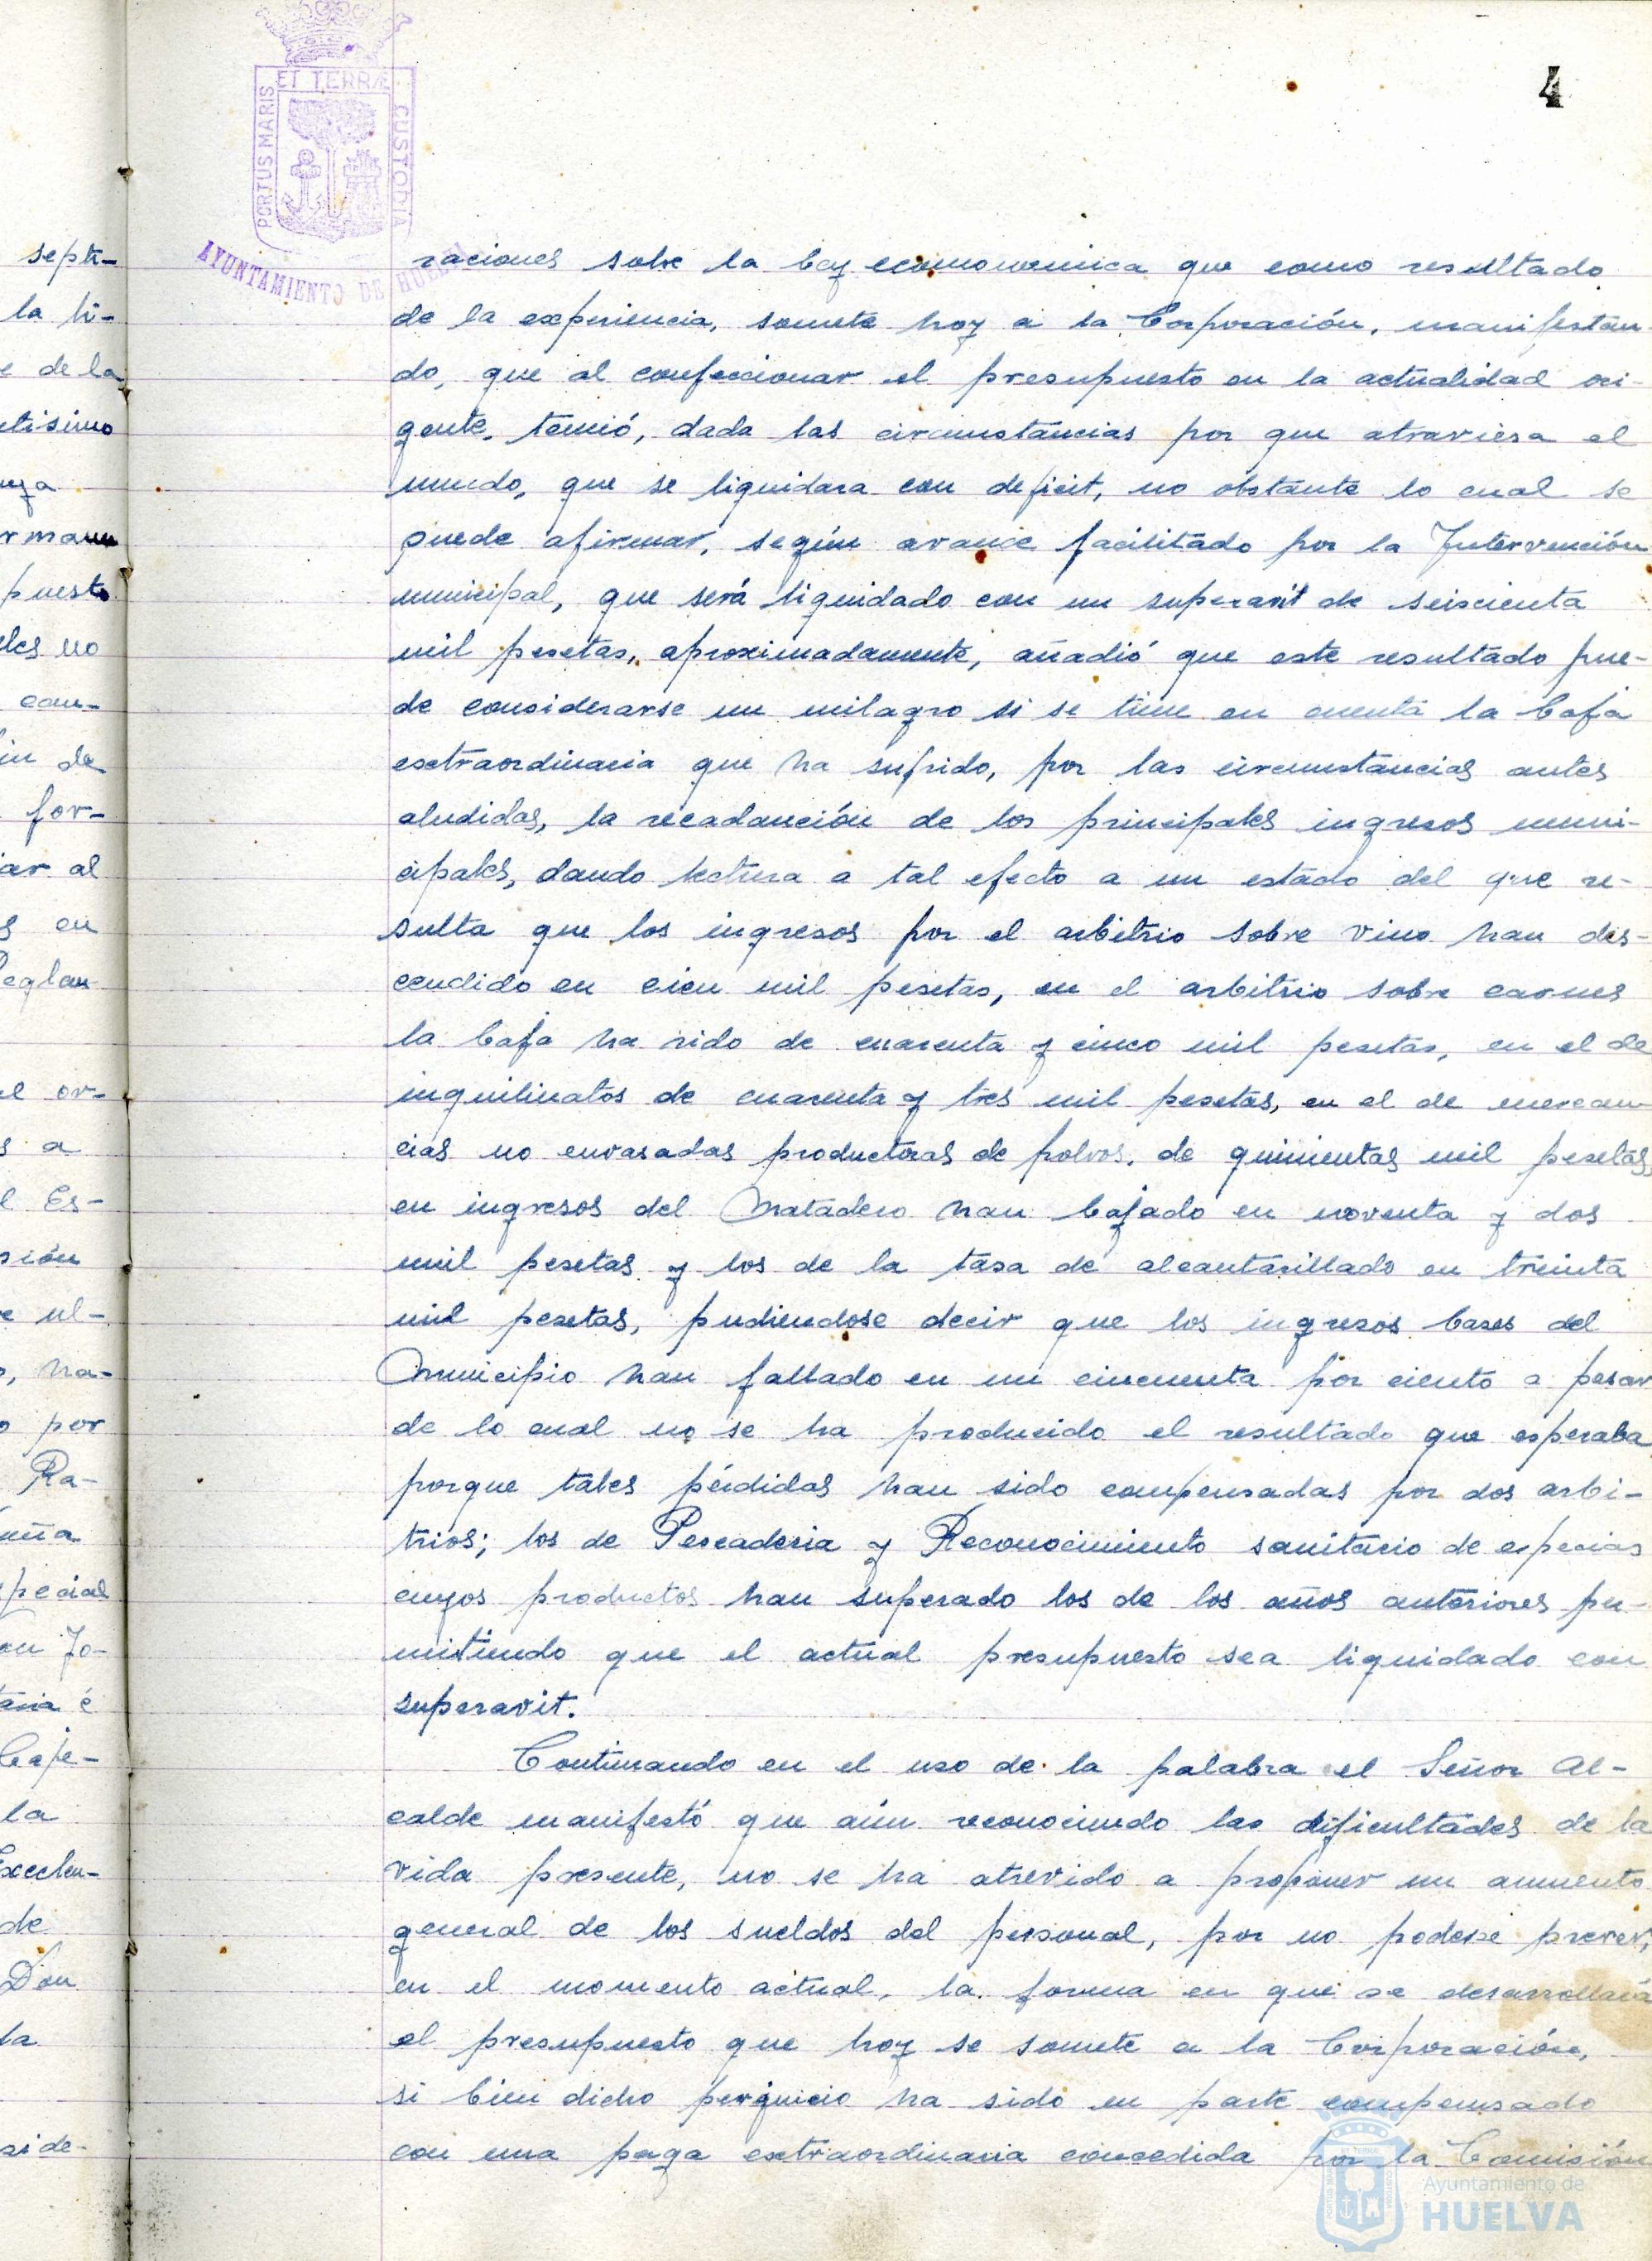 4
ET TERRÆ
PORTUS MARIS
CUSTODIA
AYUNTAMIENTO DE HUELVA
septi-
la li-
e de la
ntisimo
puesto
no
cau-
de
for-
iar al
s en
or-
s a
l Es-
sión
ul-
ha-
por
Ra-
pecial
on Jo-
la
Excelen-
de
Don
la
side-
raciones sobre la Ley economomica que como resultado
de la experiencia, somete hoy a la Corporación, manifestan-
do, que al confeccionar el presupuesto en la actualidad vi-
gente, temió, dada las circunstancias por que atraviesa el
mundo, que se liquidara con deficit, no obstante lo cual se
puede afirmar, según avance facilitado por la Intervención
municipal, que será liquidado con un superavit de seiscienta
mil pesetas, aproximadamente, añadió que este resultado pue-
de considerarse un milagro si se tiene en cuenta la baja
extraordinaria que ha sufrido, por las circunstancias antes
aludidas, la recadaución de los principales ingresos muni-
cipales, dando lectura a tal efecto a un estado del que re-
sulta que los ingresos por el arbitrio sobre vino han des-
cendido en cien mil pesetas, en el arbitrio sobre carnes
la baja ha sido de cuarenta y cinco mil pesetas, en el de
inquilinatos de cuarenta y tres mil pesetas, en el de mercan-
cias no envasadas productoras de polvos, de quinientas mil pesetas,
en ingresos del Matadero han bajado en noventa y dos
mil pesetas y los de la tasa de alcantarillado en treinta
mil pesetas, pudiendose decir que los ingresos bases del
Municipio han fallado en un cincuenta por ciento a pesar
de lo cual no se ha producido el resultado que esperaba
porque tales pérdidas han sido compensadas por dos arbi-
trios; los de Pescaderia y Reconocimiento sanitario de especias
cuyos productos han superado los de los años anteriores per-
mitiendo que el actual presupuesto sea liquidado con
superavit.
Continuando en el uso de la palabra el Señor Al-
calde manifestó que aún reconociendo las dificultades de la
vida presente, no se ha atrevido a proponer un aumento
general de los sueldos del personal, por no poderse prever,
en el momento actual, la forma en que se desarrollará
el presupuesto que hoy se somete a la Corporación,
si bien dicho perjuicio ha sido en parte compensado
con una paga extraordinaria concedida por la Comisión
Ayuntamiento de
HUELVA